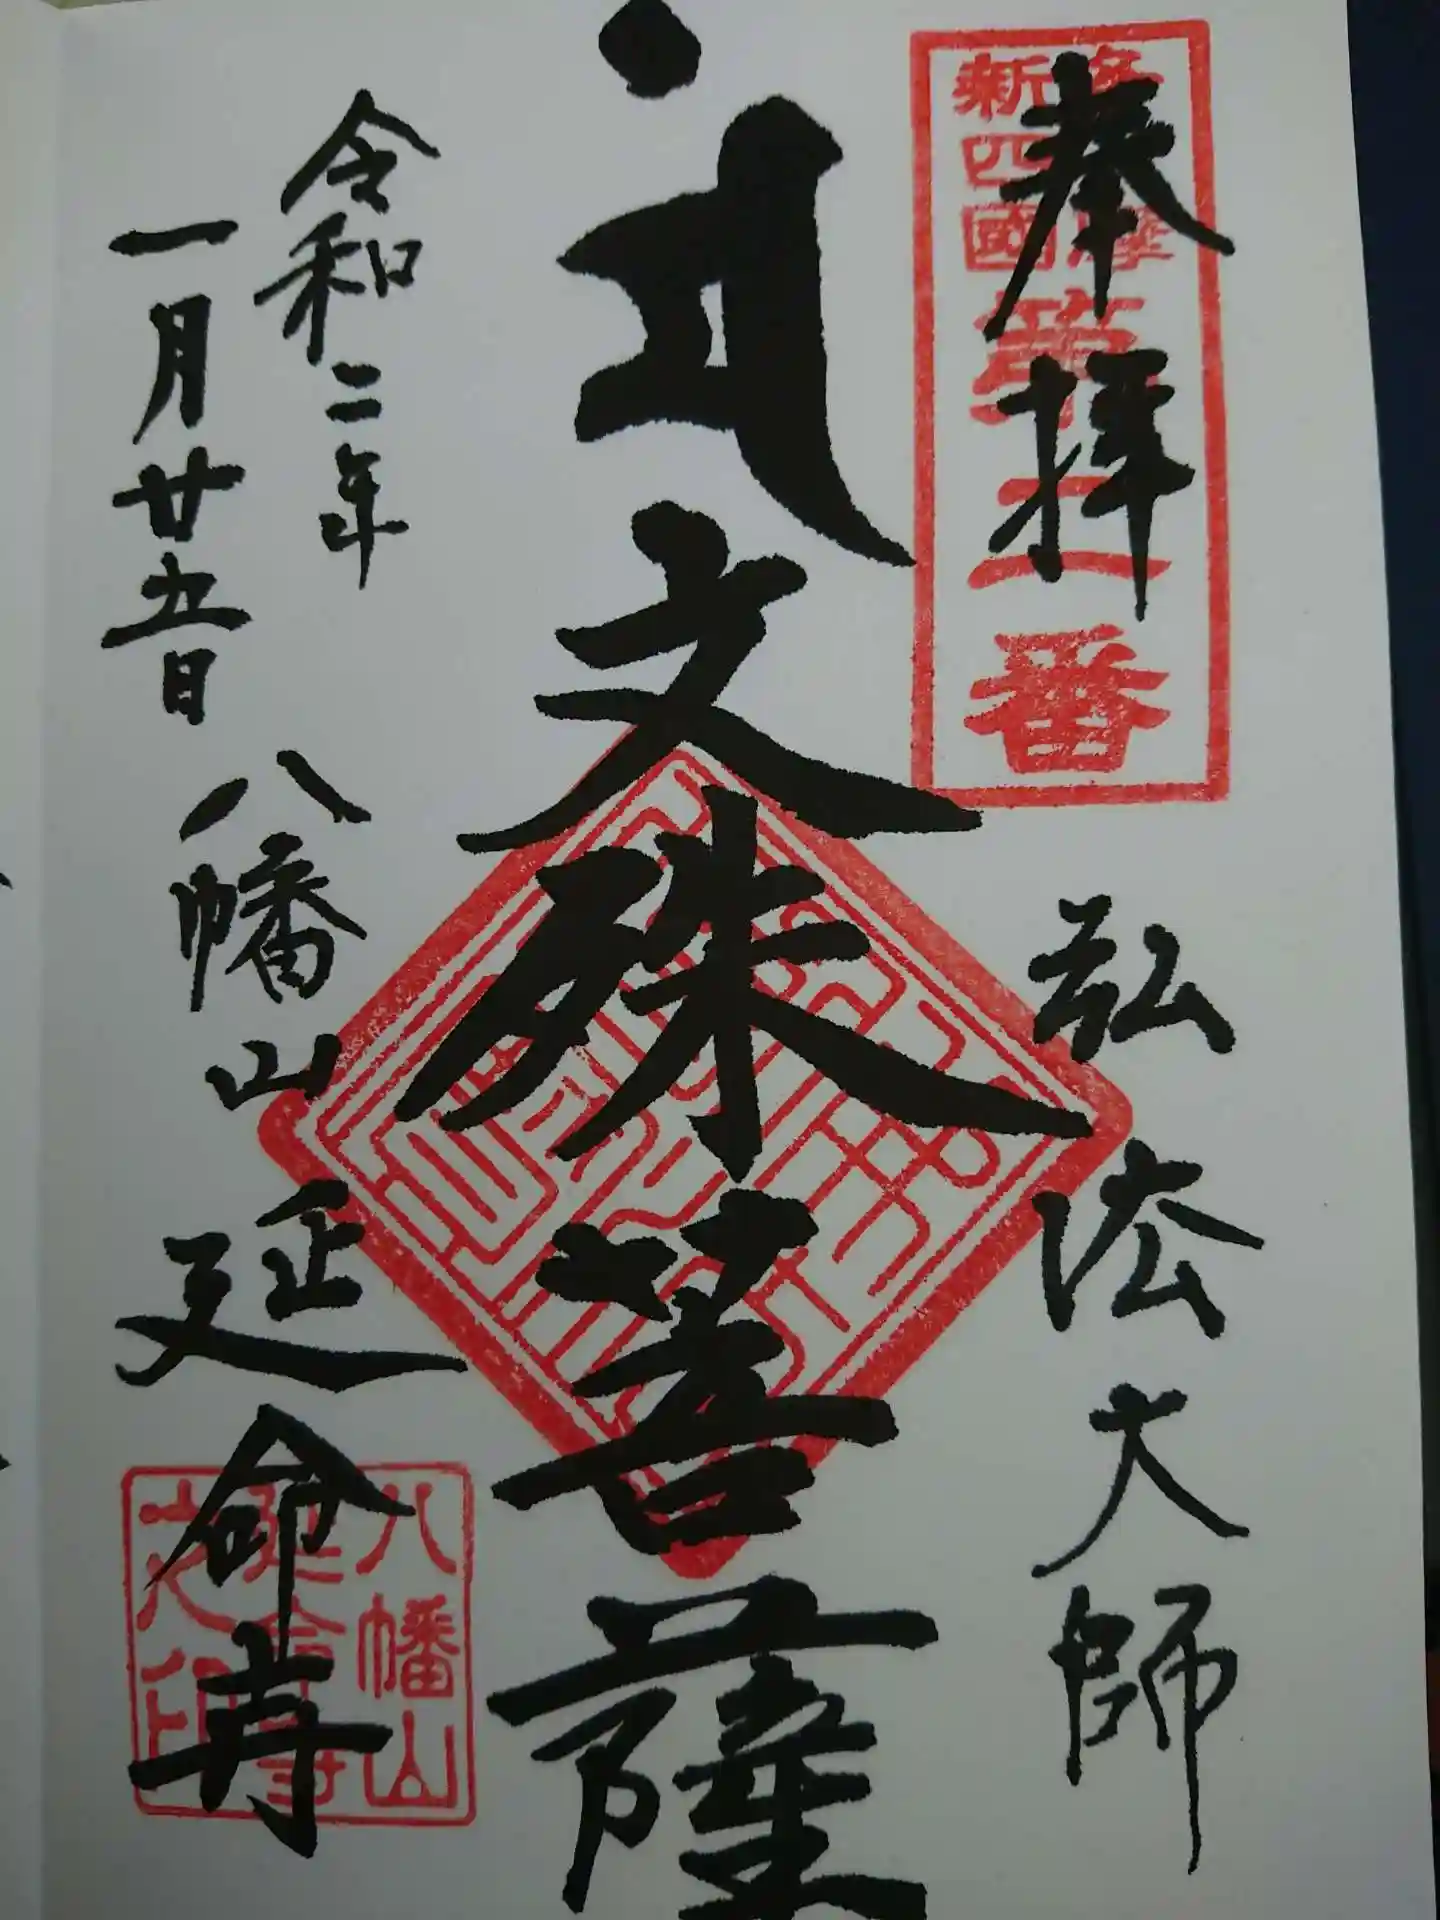 奉拝
弘法大師
文殊菩薩
令和二年
一月廿五日
八幡山延命寺
新四國
第
番
八幡山
延命寺
之印